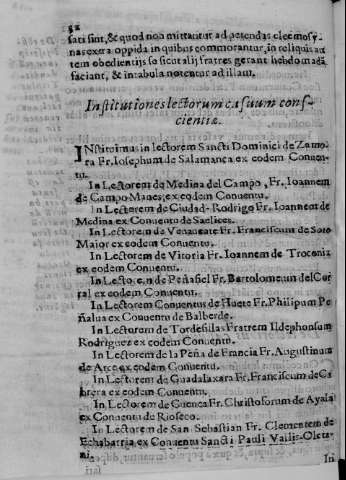 32
sati sint, & quod non mittantur ad petendas eleemosy-
nas extra oppida in quibus commorantur, in reliquis au
tem obedientijs se sicut alij fratres gerant hebdomadã
faciant, & in tabula notentur ad illam.
Institutiones lectorum casuum cons-
cientiæ.
INstituimus in lectorem Sancti Dominici de Zamo
ra Fr. Iosephum de Salamanca ex eodem Conuen-
tu.
In Lectorem de Medina del Campo, Fr. Ioannem
de Campo Manes, ex eodem Conuentu.
In Lectorem de Ciudad-Rodrigo Fr. Ioannem de
Medina ex Conuento de Saelices.
In Lectorem de Fr. Franciscum de Soto
Maior ex eodem Conuentu.
In Lectorem de Vitoria Fr. Ioannem de Troconiz
ex eodem Conuentu.
In Lectorem de Peñafiel Fr. Bartolomeum del Cor
ral ex eodem Conuentu.
In Lectorem Conuentus de Huete Fr. Philipum Pe
ñalua ex Conuentu de Balberde.
In Lectorem de Tordesillas Fratrem Ildephonsum
Rodriguez ex eodem Conuento.
In Lectorem de la Peña de Francia Fr. Augustinum
de Arce ex eodem Conuentu.
In Lectorem de Guadalaxara Fr. Franciscum de Ca
brera ex eodem Conuentu.
In Lectorem de Cuenca Fr. Christoforum de Ayala
ex Conuentu de Rioseco.
In Lectorem de San Sebastian Fr. Clementem de
Echabarria ex Conuentu Sancti Pauli Vallis-Oleta
ni.
Ini